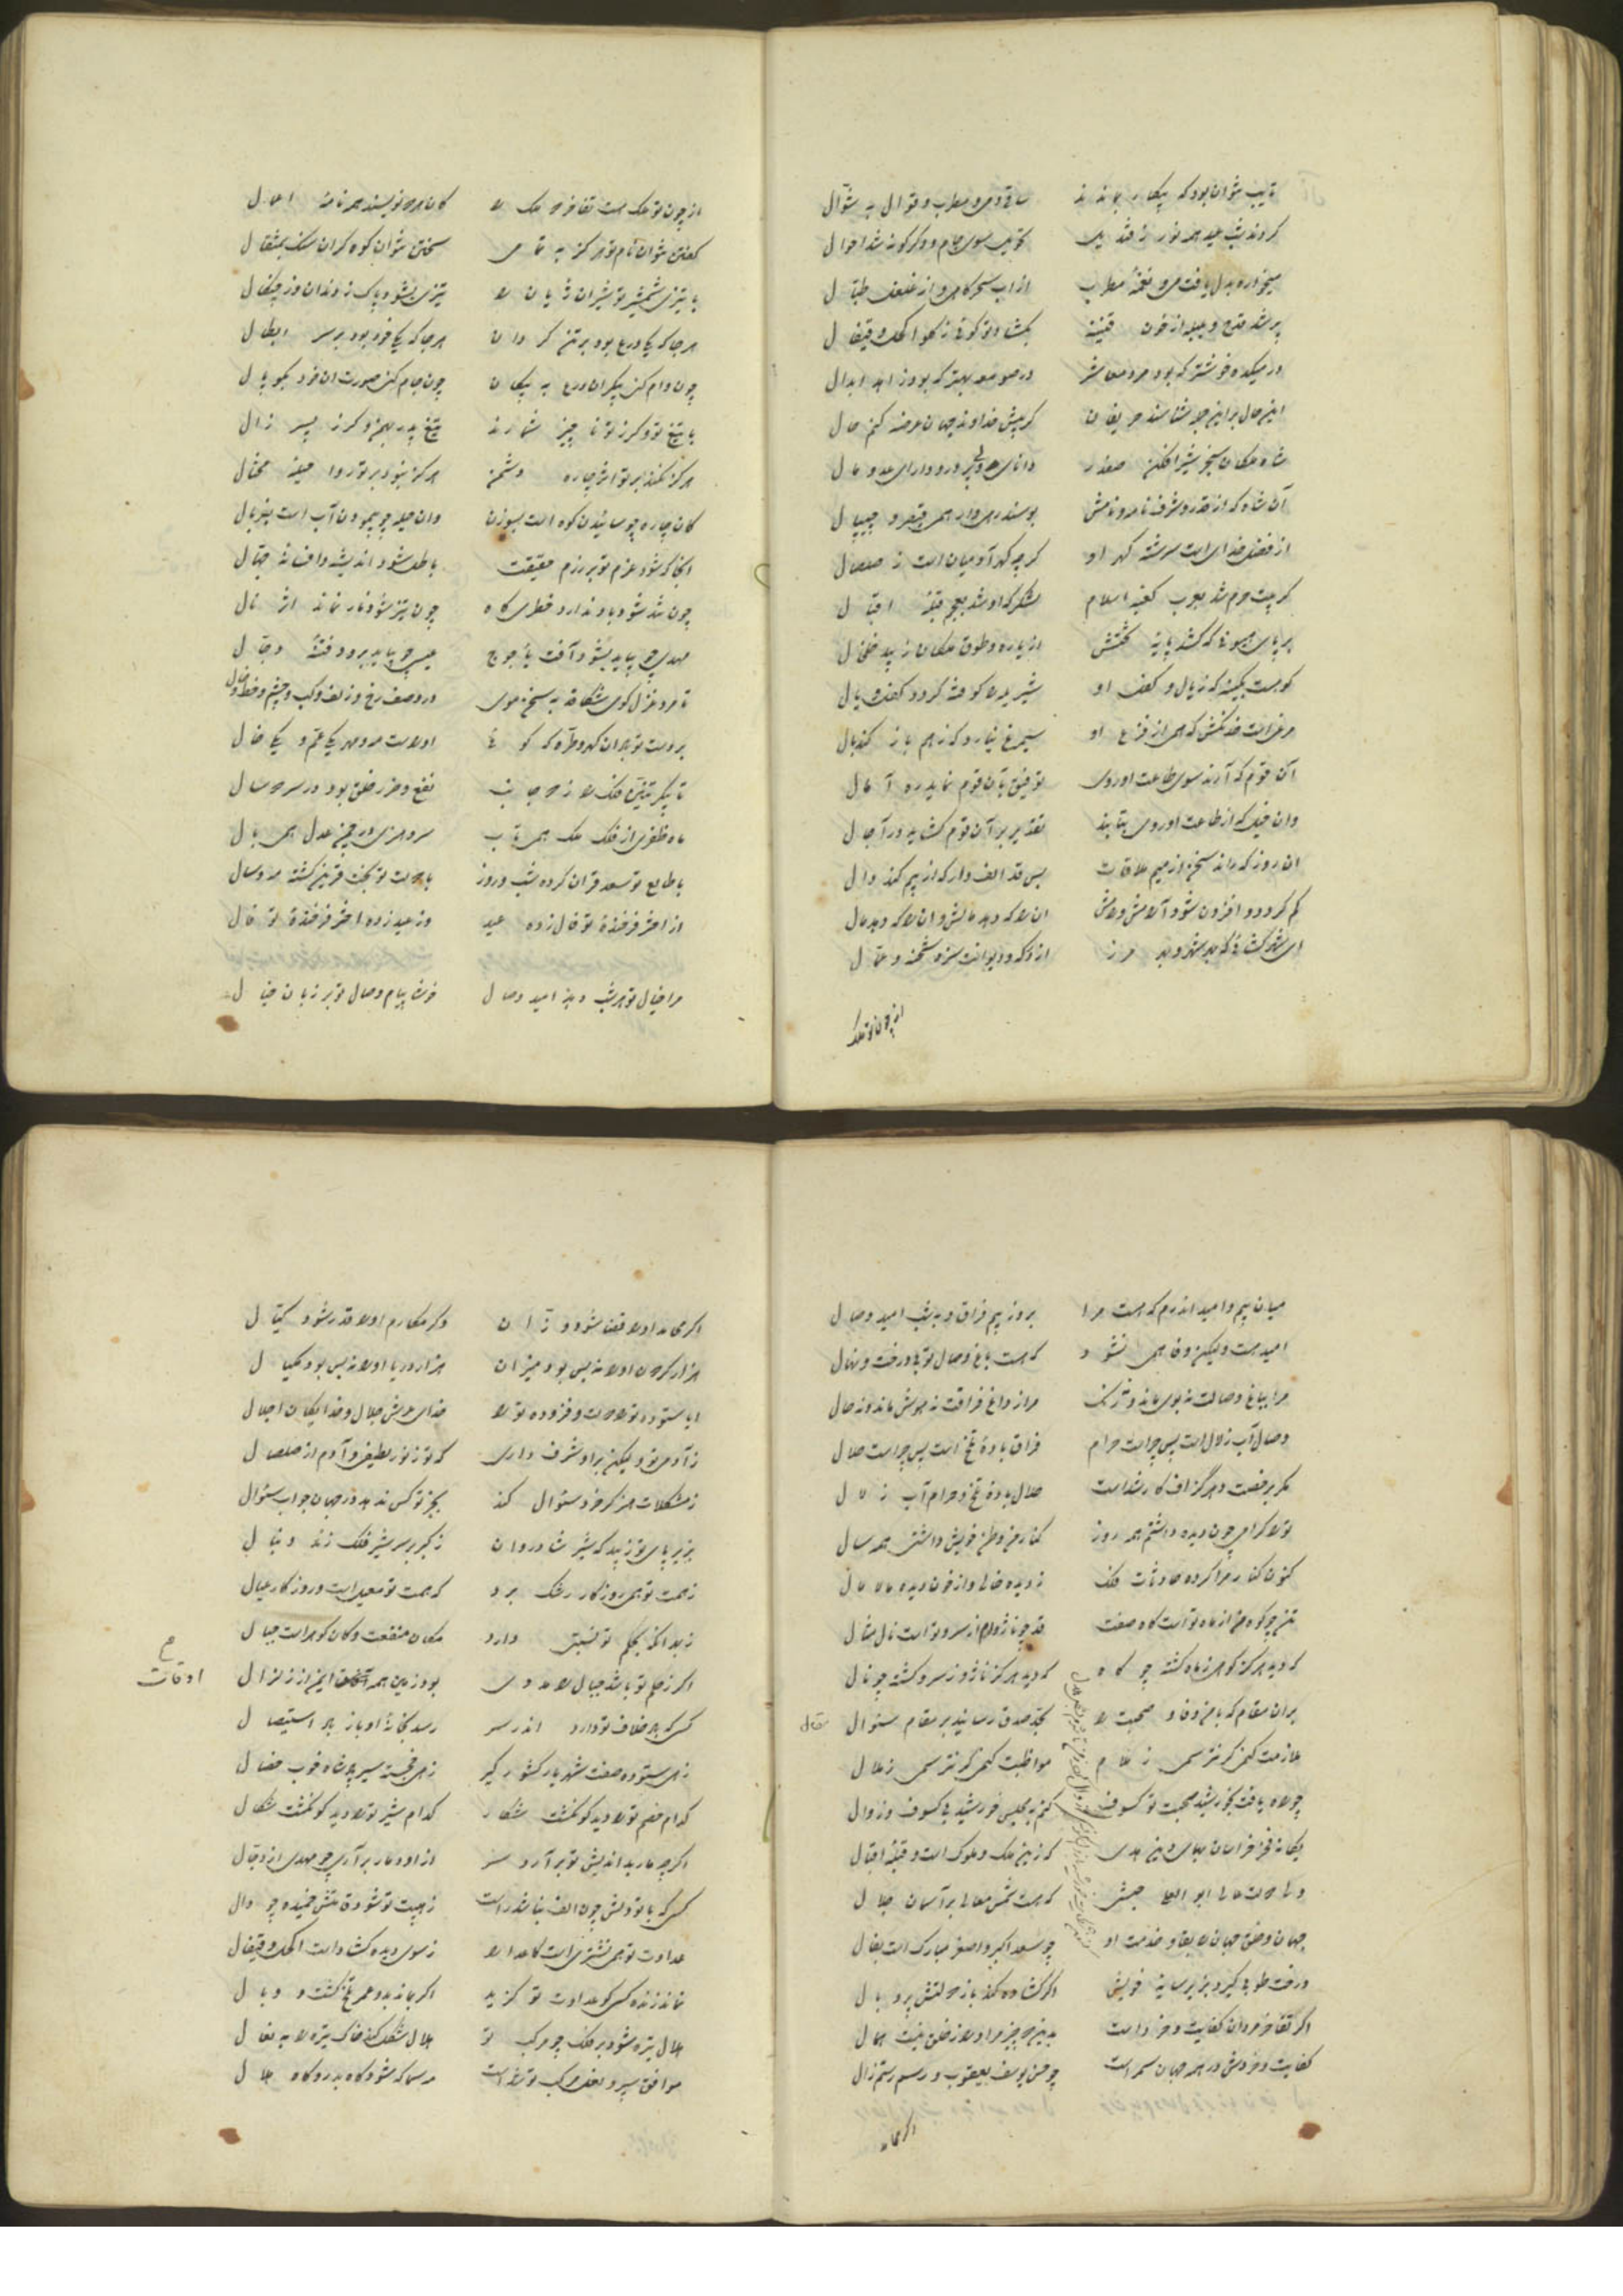 تایب نتوان بود که بیکار بماندند ساقی و می و مطرب و قوال به شوال
کردند شب عید همه نور ز قندیل تحویل سوی جام و دگرگونه شد احوال
میخواره بدل یافت می و نغمهٔ مطرب از آب سحرگاهی و از غلغل طبال
پر شد قدح و بلبله از خون قنینه بگشاد تو گوئی ز گلو اکحل و قیفال
در میکده خوشتر که بود مرد معاشر در صومعه بهتر که بود زاهد ابدال
این حال بر این جو شناسند حریفان گر پیش خداوند جهان عرضه کنم حال
شاه ملکان سنجر شیر افکن صفدر دانای ولی پرور و دارای عدو مال
آن شاه که از قدر و شرف نامه و نامش بوسند همی قیصر و جیپال
از فضل خدای است سرشته گهر او گر چه گهر آدمیان است ز صلصال
گر بیت حرم شد بعرب کعبه اسلام لشکرگه او شد بعجم قبله اقبال
بر پای همیونی که کشد پایهٔ تختش از یاره و طوق ملکان زیبد خلخال
کوهست بکینه که ز یال و کتف او شیر یله را کوفته گردد کتف و یال
مرغی است خدنگش که همی از فزع او سیمرغ نیارد که زهم باز کند بال
آن قوم که آرند سوی طاعت او روی توفیق بآن قوم نماید ره آمال
وان خیل که از طاعت او روی بتابند تقدیر بر آن قوم گشاید در آجال
آن روز که راند سخن از میم ملاقات بس قد الف وار که از بیم کند دال
کم گردد و افزون شود آلامش و مالش آن را که دهد مالش و آن را که دهد مال
ای شهرگشائی که بهر شهر و بهر مرز از درگه و دیوانت سزد شحنه و عمال
از چون تو ملک
از چون تو ملک هست تفاخر همه ملک را کان همه نویسند همه نامهٔ اعمال
گفتن نتوان نام تو هرگز به تمامی سختن نتوان کوه گران سنگ بمثقال
با تیزی شمشیر تو شیران ژیان را تیزی بشود پاک ز دندان و ز چنگال
هر جا که یکی درع بود بر تن گردان هر جا که یکی خود بود بر سر ابطال
چون دام کنی پیکر آن درع به پیکان چون جام کنی صورت آن خود بکوپال
با تیغ تو و گرز تو ناچیز شمارند تیغ پدر بهمن و گرز پسر زال
هرگز نکند بر تو اثر چاره دشمن هرگز نبود بر تو روا حیلهٔ محتال
کان چاره چو سائیدن کوه است بسوزن وان حیله چو پیمودن آب است بغربال
آنجا که شود عزم تو بر رزم حقیقت باطل شود اندیشه و افسانه جهال
چون تند شود باد ندارد خطری کاه چون تیز شود نار نماند اثر نال
مهدی چو بیاید بشود آفت یأجوج عیسی چو بیاید برود فتنهٔ دجال
تا مرد غزل گوی شکافد به سخن موی در وصف رخ و زلف و لب و چشم و خط و خال
بر دست تو باد آن که و مرّه که گوئی او راست مه و مهر یکی عم و یکی خال
تا پیکر تنین فلک را ز دو جانب نفع و ضرر خلق بود در سر دنبال
ماه ظفری از فلک ملک همی تاب سرو هنری در چمن عدل همی بال
با طالع تو سعد قران کرده شب و روز با دولت تو بخت قرین گشته مه و سال
از اختر فرخندهٔ تو فال زده عید وز عید زده اختر فرخندهٔ تو فال
مرا خیال تو هر شب دهد امید وصال خوشا پیام وصال تو بر زبان خیال
میان بیم و امید اندرم که هست مرا بروز بیم فراق و بشب امید وصال
امید هست و لیکن وفا همی نشود که هست باغ وصال تو بی درخت و نهال
مرا بباغ وصالت نه بوی ماند و نه رنگ مرا ز داغ فراقت نه هوش ماند و نه حال
وصال آب زلال است پس چراست حرام فراق بادهٔ تلخ است پس چراست حلال
مگر برخصت و هرگز اف کار شده است حلال بادهٔ تلخ و حرام آب زلال
تو را گرامی چون دیده داشتم همه روز کنار من وطن خویش داشتی همه سال
کنون کنار مرا کرده حادثات فلک ز دیده خالی و از خون دیده مالامال
تنم چو کوه من از ماه تو است کاه صفت قدم چو ناژ و از سرو تو است نال مثال
که دید هرگز کوهی ز ماه گشته چو کاه که دید هرگز ناژو ز سرو گشته چو نال
بر آن مقام که با من وفا و صحبت را بجد صدق رسانید بر مقام سئوال
مقال
ملازمت کنمی گر نترسمی ز ملام مواظبت کنمی گر نترسمی ز ملال
چو ماه یافت بخورشید صحبت تو کسوف کنم به مجلس خورشید بی کسوف و زوال
یگانه فخر خراسان بهای دین هدی که زین ملک و ملوک است و قبلهٔ اقبال
ولی دولت عالی ابو العلا حبشی که هست شمس معالی بر آسمان جلال
جهان و خلق جهان را بقا و خدمت او چو سعد اکبر و اصغر مبارک است بفال
درخت طوبی گیرد بزیر سایهٔ خویش اگر گشاده کند باز دولتش پر و بال
اگر تفاخر مردان کفایت و خرد است بدین دو چیز مر او را ز خلق نیست همال
کفایت و خردش در همه جهان سمر است چو حسن یوسف یعقوب و رسم رستم زال
اگر محامد
اگر محامد او را قضا شود وزان وگر مکارم او را قدر شود کیال
هزار گردون او را نه بس بود میزان هزار دریا او را نه بس بود مکیال
ایا ستوده تو را دولت و فزوده تو را خدای عرش جلال و خدایگان اجلال
ز آدمی تو و لیکن بر او شرف داری که تو ز نور لطیفی و آدم از صلصال
ز مشکلات هر آنگه خرد سئوال کند بجز تو کس ندهد در جهان جواب سئوال
بزیر پای تو زیبد که شیر شادروان ز کبر بر سر شیر فلک زند دنبال
ز همت تو همی روزگار رشک برد که همت تو معیل است و روزگار عیال
زمانه بحلم تو نسبتی دارد مکان منفعت و کان گوهر است جبال
اگر ز حلم تو باشد جبال را مددی بود زمین همه اوقات ایمن از زلزال
م
اوقات
کسی که باد خلاف تو دارد اندر سر رسد بخانهٔ او باز باد استیصال
زهی ستوده صفت شهریار کشورگیر زهی خجسته سیر پادشاه خوب خصال
کدام خصم تو را دید کو نگشت شکار کدام شیر تو را دید کو نگشت شکال
اگر چه مار بداندیش تو برآرد سر از او دمار برآری چو مهدی از دجال
کسی که با تو دلش چون الف نباشد راست ز هیبت تو شود قامتش خمیده چو دال
عداوت تو همی نشتری است کاعدا را ز سوی دیده گشاده است اکحل و قیفال
نماند زنده کسی کو عداوت تو گزید اگر بماند بدو عمر تلخ گشت و وبال
هلال تیره شود بر فلک چو مرکب تو هلال شکل کند خاک تیره را به نعال
موافق سپر و نعل مرکب تو شده است مر سما که شود گاه بدر و گاه هلال